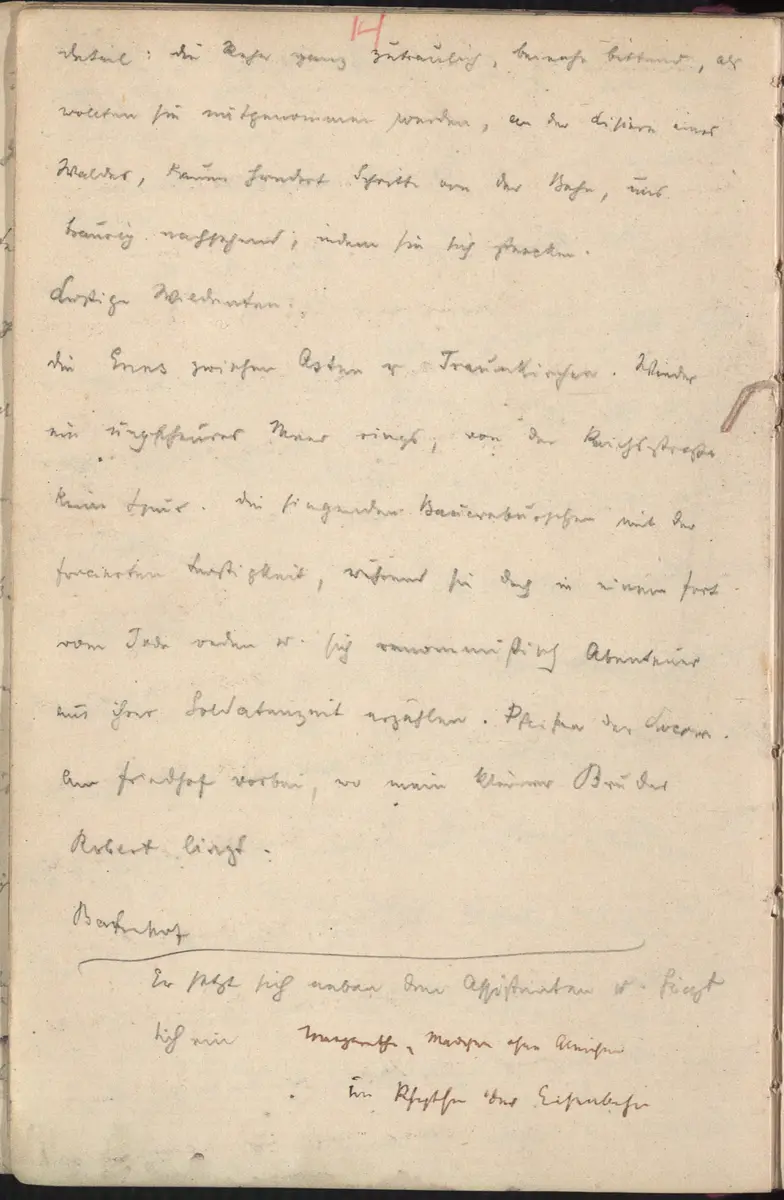 14
detail: die Rehe ganz zutraulich, beinahe bittend, als
wollten sie mitgenommen werden, an der Lisière eines
Waldes, kaum hundert Schritte von der Bahn, uns
traurig nachsehend, indem sie sich strecken.
Lustige Wildenten.
die Enns zwischen Asten u Traunkirchen. Wieder
ein ungeheures Meer rings, von der Reichsstraße
keine Spur. die singenden Bauernburschen mit der
forcierten Lustigkeit, während sie doch in einem fort
vom Tode reden u. sich renommistisch Abenteuer
aus ihrer Soldatenzeit erzählen. Pfeifen der Locom.
Am Friedhof vorbei, wo mein kleiner Bruder
Robert liegt.
Bahnhof
Er setzt sich neben den Assistenten u.
sich ein Margarethe, Mädchen ohne Gleichen
im Rhythm der Eisenbahn